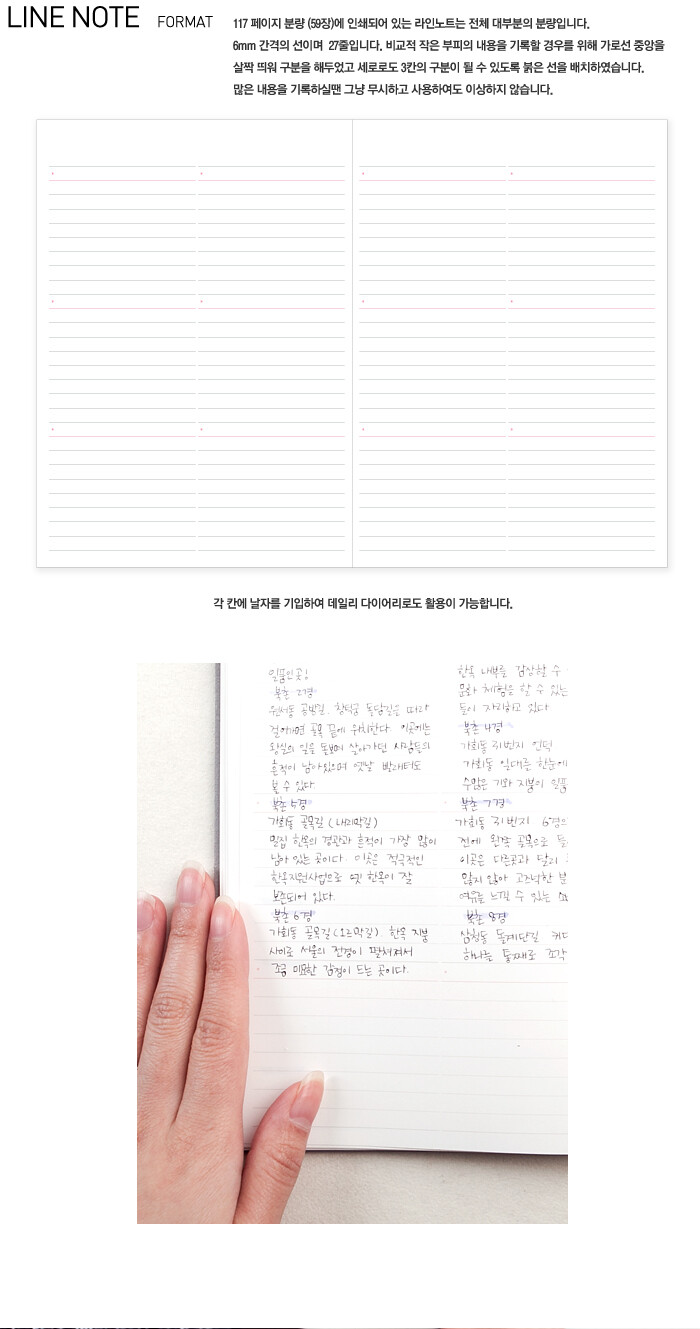 LINE NOTE FORMAT
117 페이지 분량 (59장)에 인쇄되어 있는 라인노트는 전체 대부분의 분량입니다.
6mm 간격의 선이며 27줄입니다. 비교적 작은 부피의 내용을 기록할 경우를 위해 가로선 중앙을
살짝 띄워 구분을 해두었고 세로로도 3칸의 구분이 될 수 있도록 붉은 선을 배치하였습니다.
많은 내용을 기록하실땐 그냥 무시하고 사용하여도 이상하지 않습니다.
각 칸에 날자를 기입하여 데일리 다이어리로도 활용이 가능합니다.
일품인곳!
북촌 2경
원서동 공방길. 창덕궁 돌담길을 따라
걸어가면 골목 끝에 위치한다. 이곳에는
왕실의 일을 돌보며 살아가던 사람들의
흔적이 남아있으며 옛날 빨래터도
볼 수 있다.
북촌 5경
가회동 골목길 (내리막길)
밀집 한옥의 경관과 흔적이 가장 많이
남아 있는 곳이다. 이곳은 적극적인
한옥지원사업으로 옛 한옥이 잘
보존되어 있다.
북촌 6경
가회동 골목길 (오르막길). 한옥 지붕
사이로 서울의 전경이 펼쳐져서
조금 미묘한 감정이 드는 곳이다.
한옥 내부를 감상할 수
문화 체험을 할 수 있는
들이 자리하고 있다
북촌 4경
가회동 31번지 언덕
가회동 일대를 한눈에
수많은 기와 지붕이 일품
북촌 7경
가회동 31번지 6경의
전에 왼쪽 골목으로 들
이곳은 다른곳과 달리
많지 않아 고즈넉한 분
여유를 느낄 수 있는 소
북촌 8경
삼청동 돌계단길 커다
하나를 통째로 조각